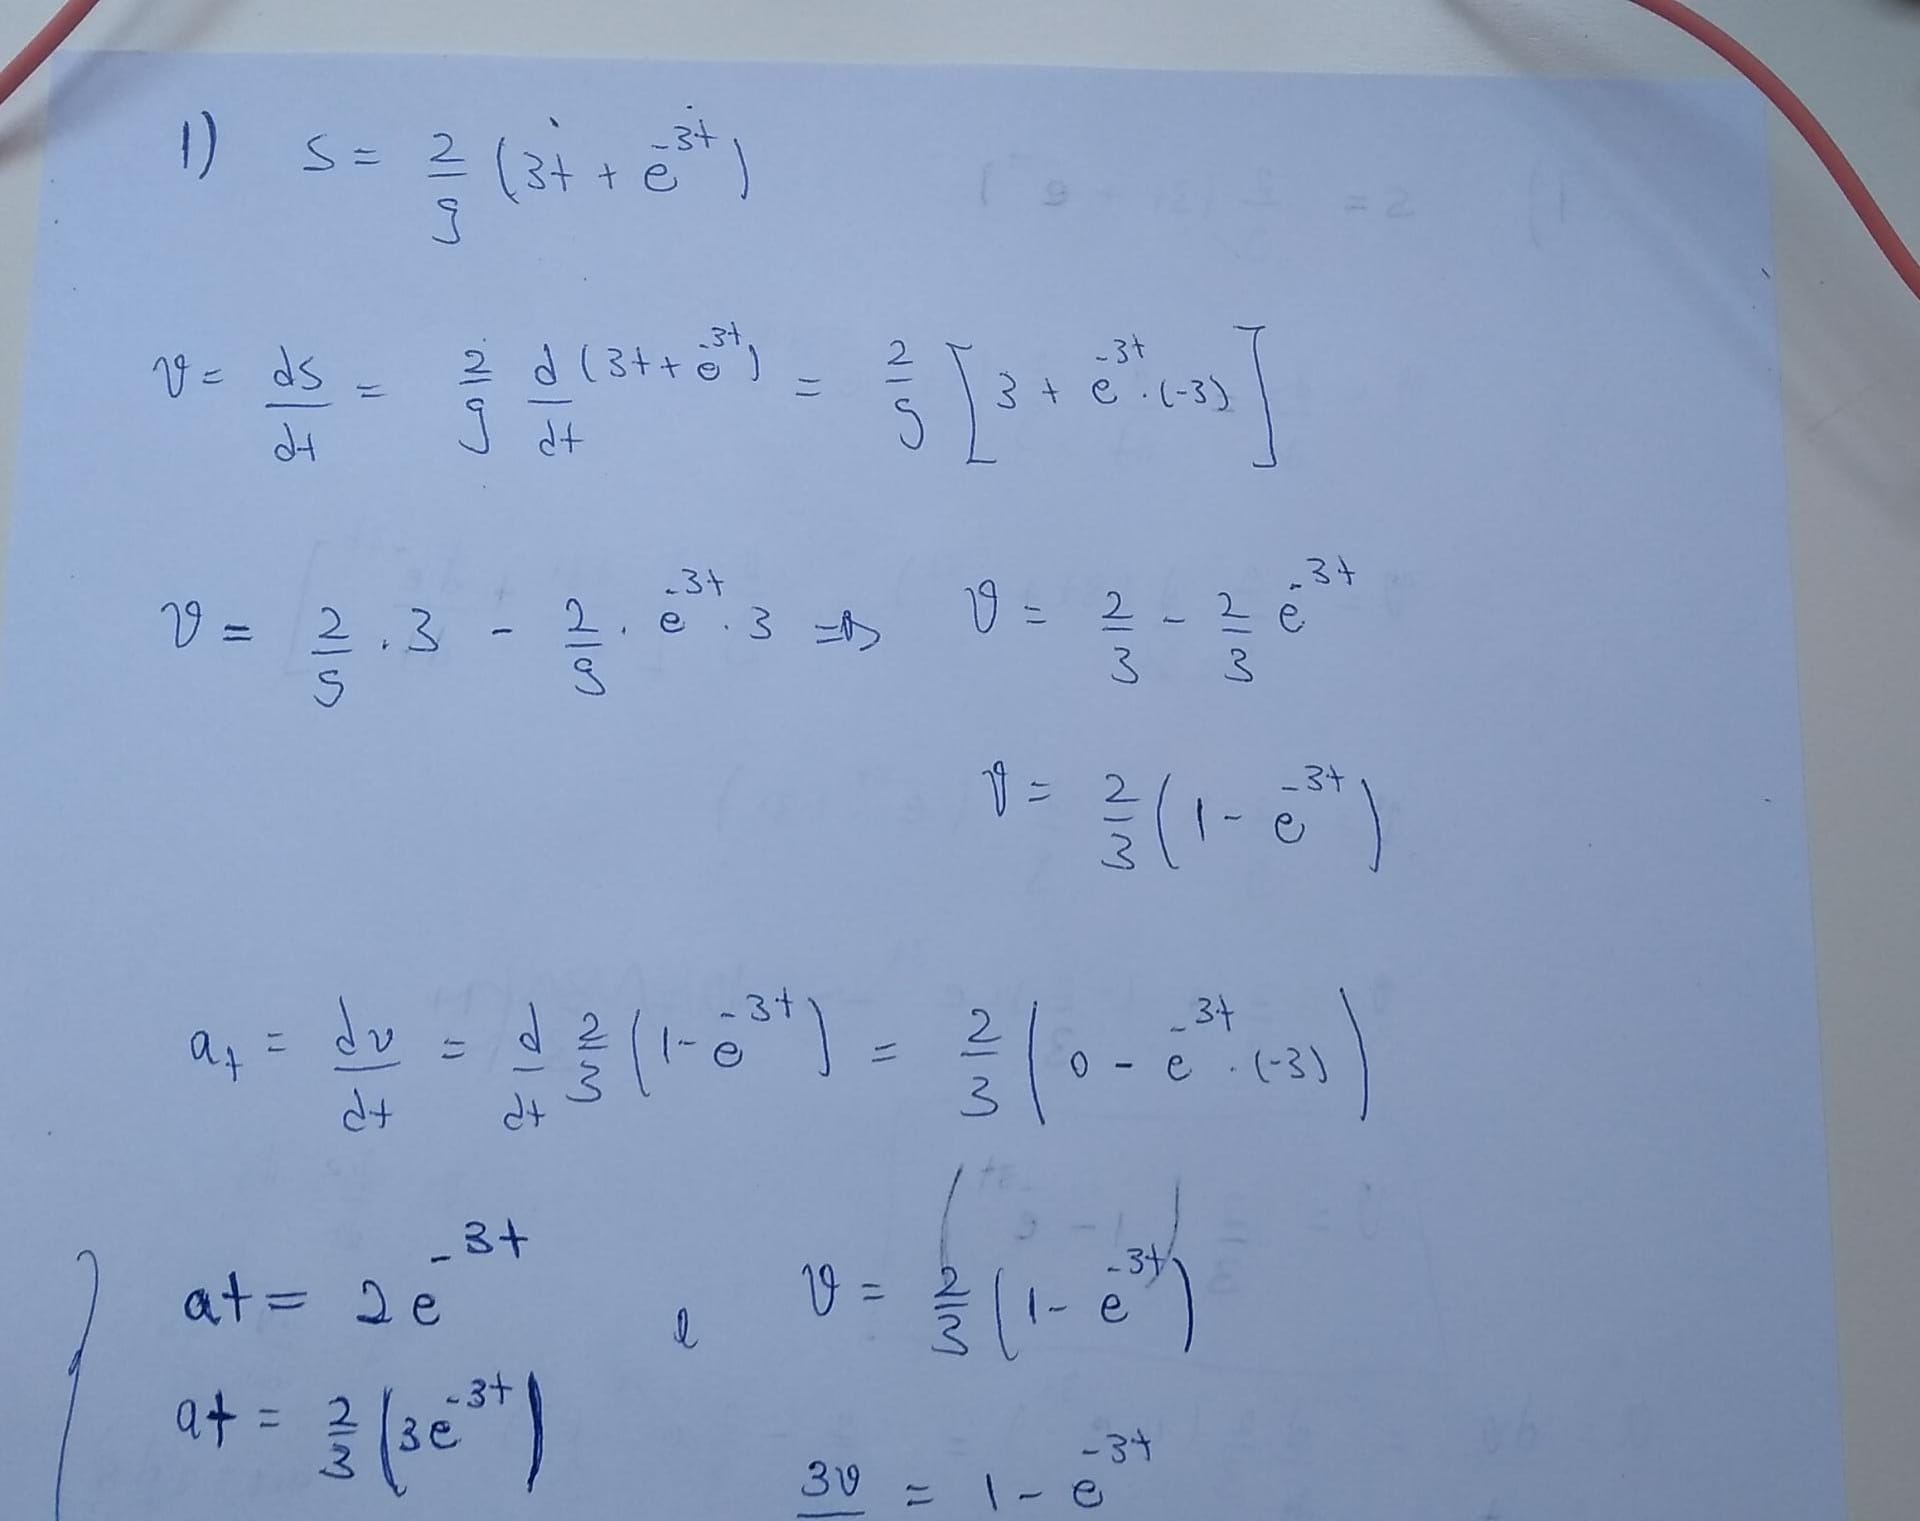 1) s = 2/9 (3t + e^-3t)
v = ds/dt = 2/9 d/dt (3t + e^-3t) = 2/9 [3 + e^-3t . (-3)]
v = 2/9 . 3 - 2/9 . e^-3t . 3 => v = 2/3 - 2/3 e^-3t
v = 2/3 (1 - e^-3t)
a_t = dv/dt = d/dt 2/3 (1 - e^-3t) = 2/3 (0 - e^-3t . (-3))
at = 2e^-3t e v = 2/3 (1 - e^-3t)
at = 2/3 (3e^-3t)
3v = 1 - e^-3t